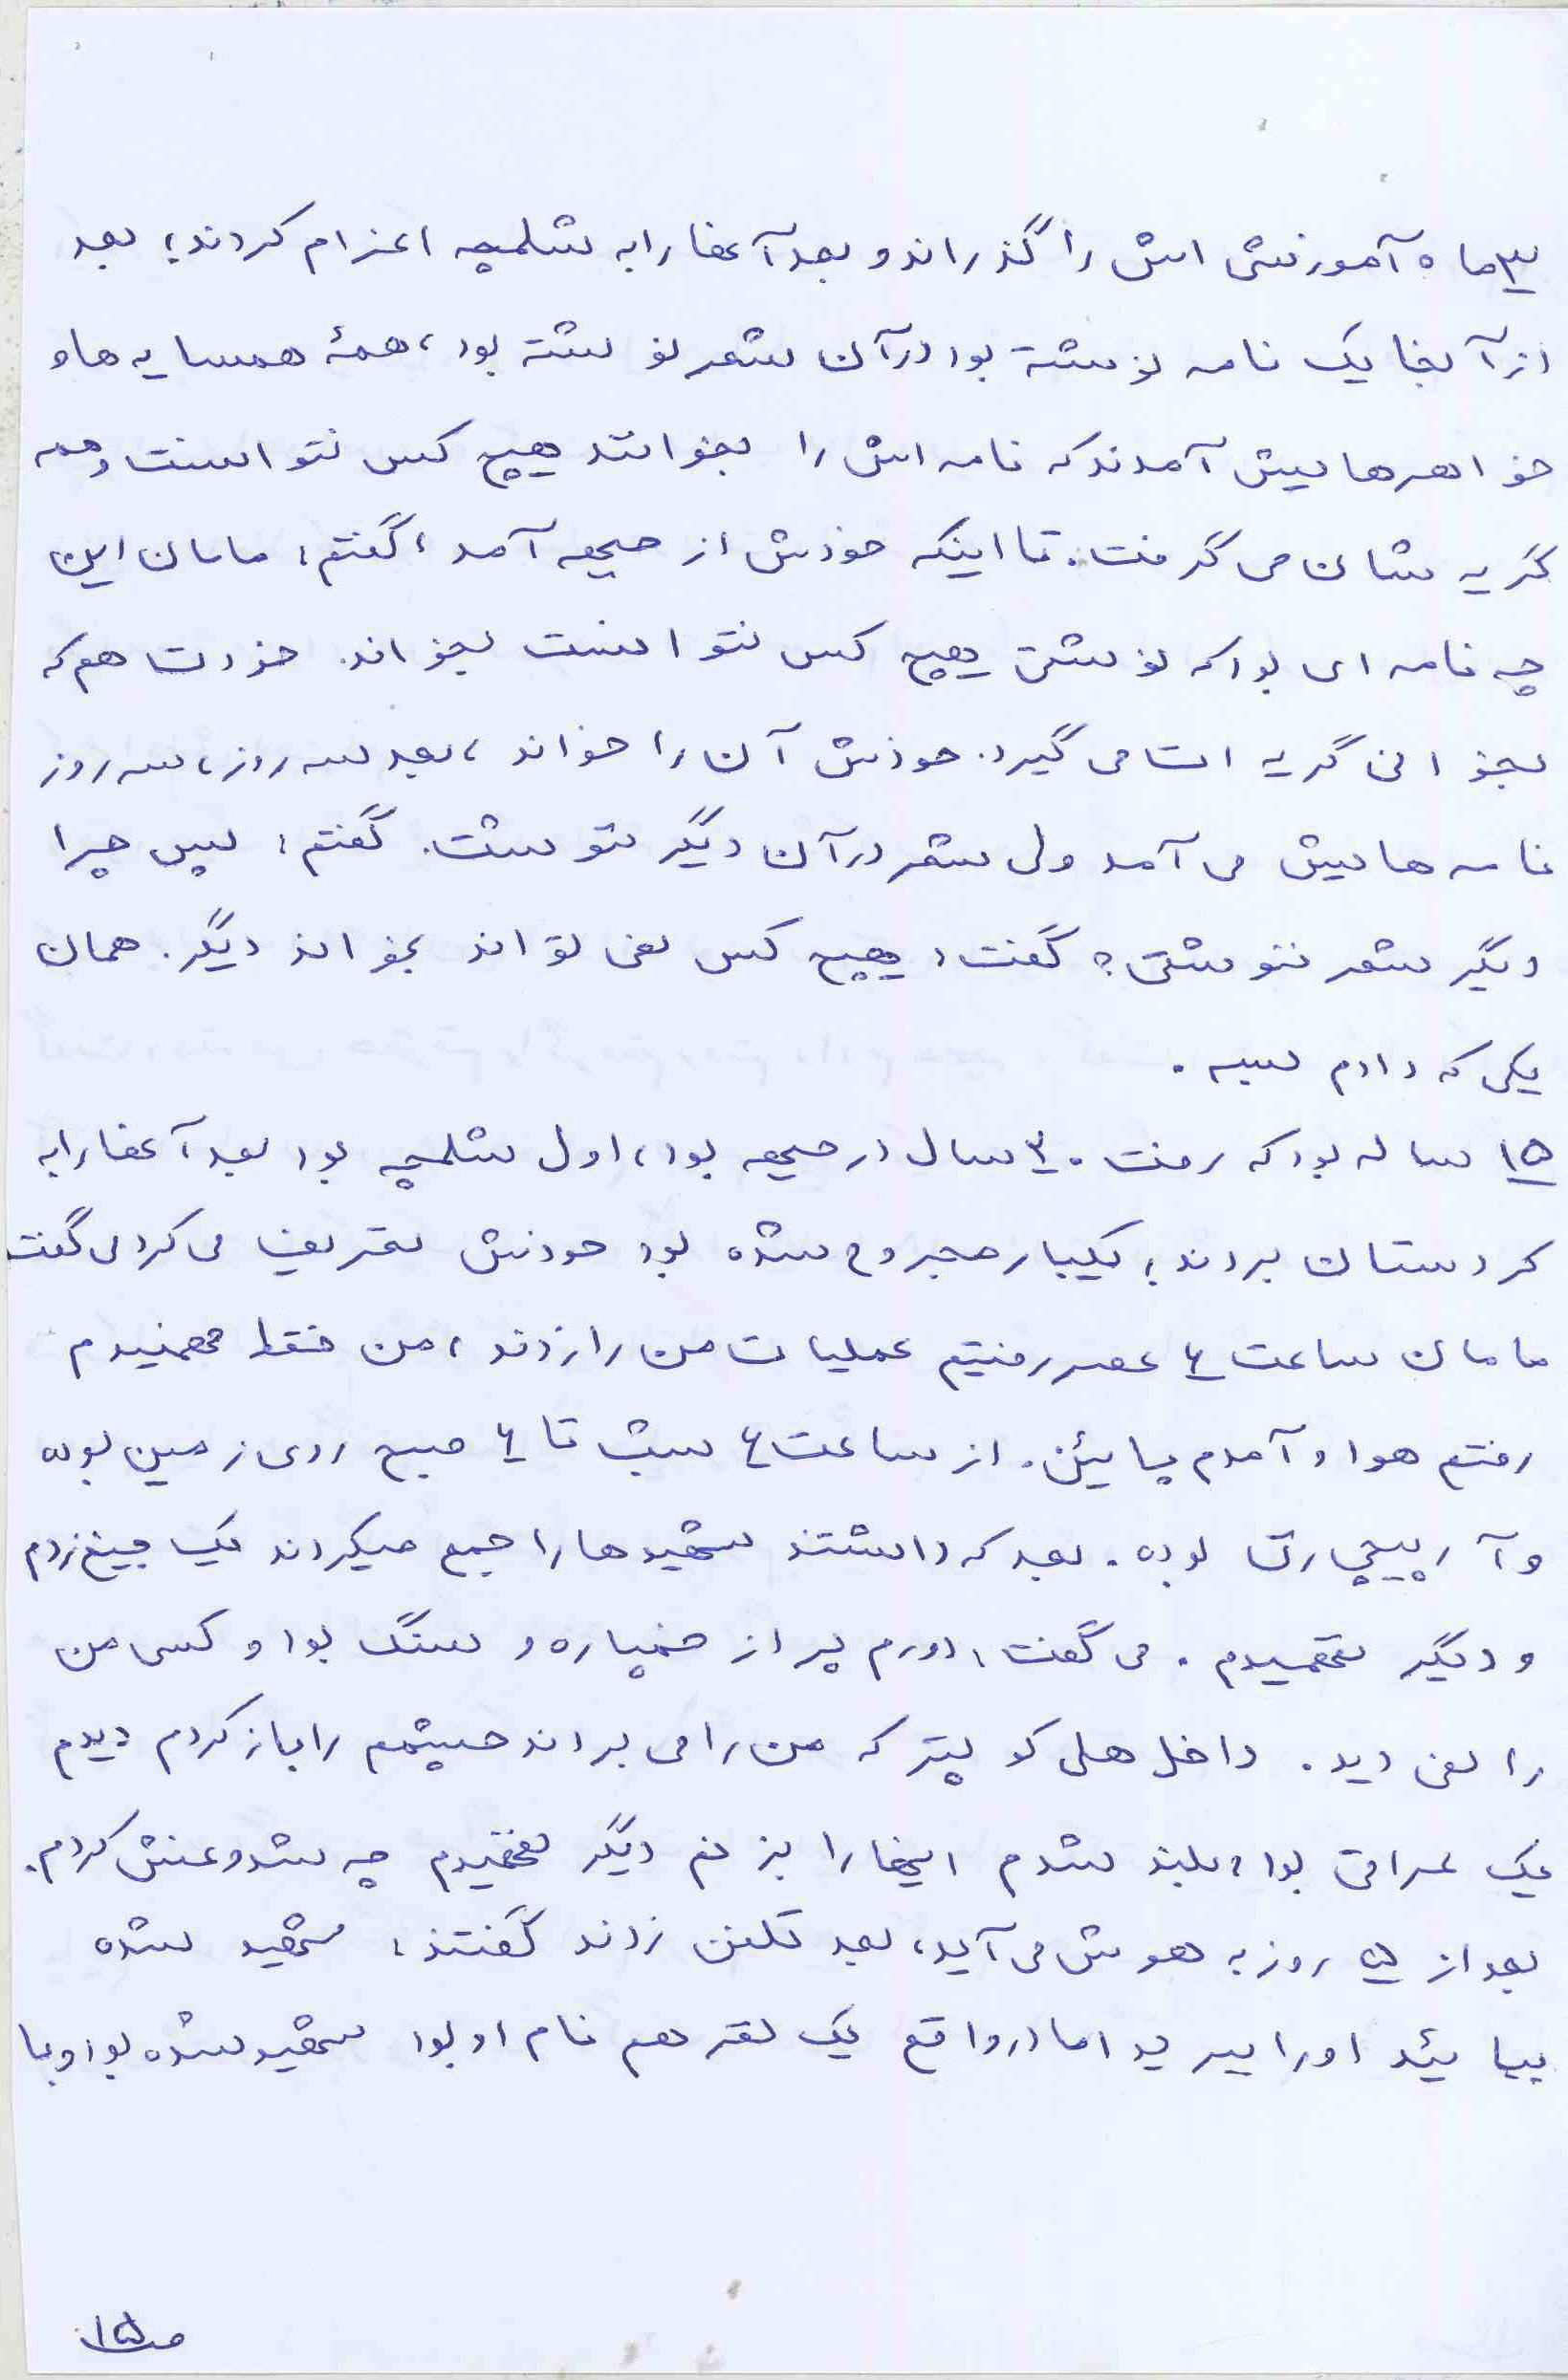 ۳ ماه آموزشی اش را گذراند و بعد آنها را به شلمچه اعزام کردند؛ بعد
از آنجا یک نامه نوشته بود در آن شعر نوشته بود، همهٔ همسایه ها و
خواهرهایش آمدند که نامه اش را بخوانند هیچ کس نتوانست و همه
گریه شان می گرفت. تا اینکه خودش از جبهه آمد، گفتم: مامان این
چه نامه ای بود که نوشتی هیچ کس نتوانست بخواند. خودت هم که
بخوانی گریه ات می گیرد. خودش آن را خواند، بعد سه روز، سه روز
نامه هایش می آمد ولی شعر در آن دیگر ننوشت. گفتم: پس چرا
دیگر شعر ننوشتی؟ گفت: هیچ کس نمی تواند بخواند دیگر. همان
یکی که دادم بسه.
۱۵ ساله بود که رفت. ۳ سال در جبهه بود، اول شلمچه بود بعد آنها را به
کردستان بردند؛ یکبار مجروح شده بود خودش تعریف می کرد می گفت
مامان ساعت ۶ عصر رفتیم عملیات من را زدند، من فقط فهمیدم
رفتم هوا و آمدم پایئن. از ساعت ۶ شب تا ۶ صبح روی زمین بوده
و آرپیچی زن بوده. بعد که داشتند شهیدها را جمع میکردند یک جیغ زدم
و دیگر نفهمیدم. می گفت: دورم پر از خمپاره و سنگ بود و کسی من
را نمی دید. داخل هلی کوپتر که من را می بردند چشمم را باز کردم دیدم
یک عراقی بود، بلند شدم اینها را بزنم دیگر نفهمیدم چه شد و غش کردم.
بعد از ۵ روز به هوش می آید، بعد تلفن زدند گفتند: شهید شده
بیایئد او را ببرید اما در واقع یک نفر هم نام او بود شهید شده بود و با
ص۱۵